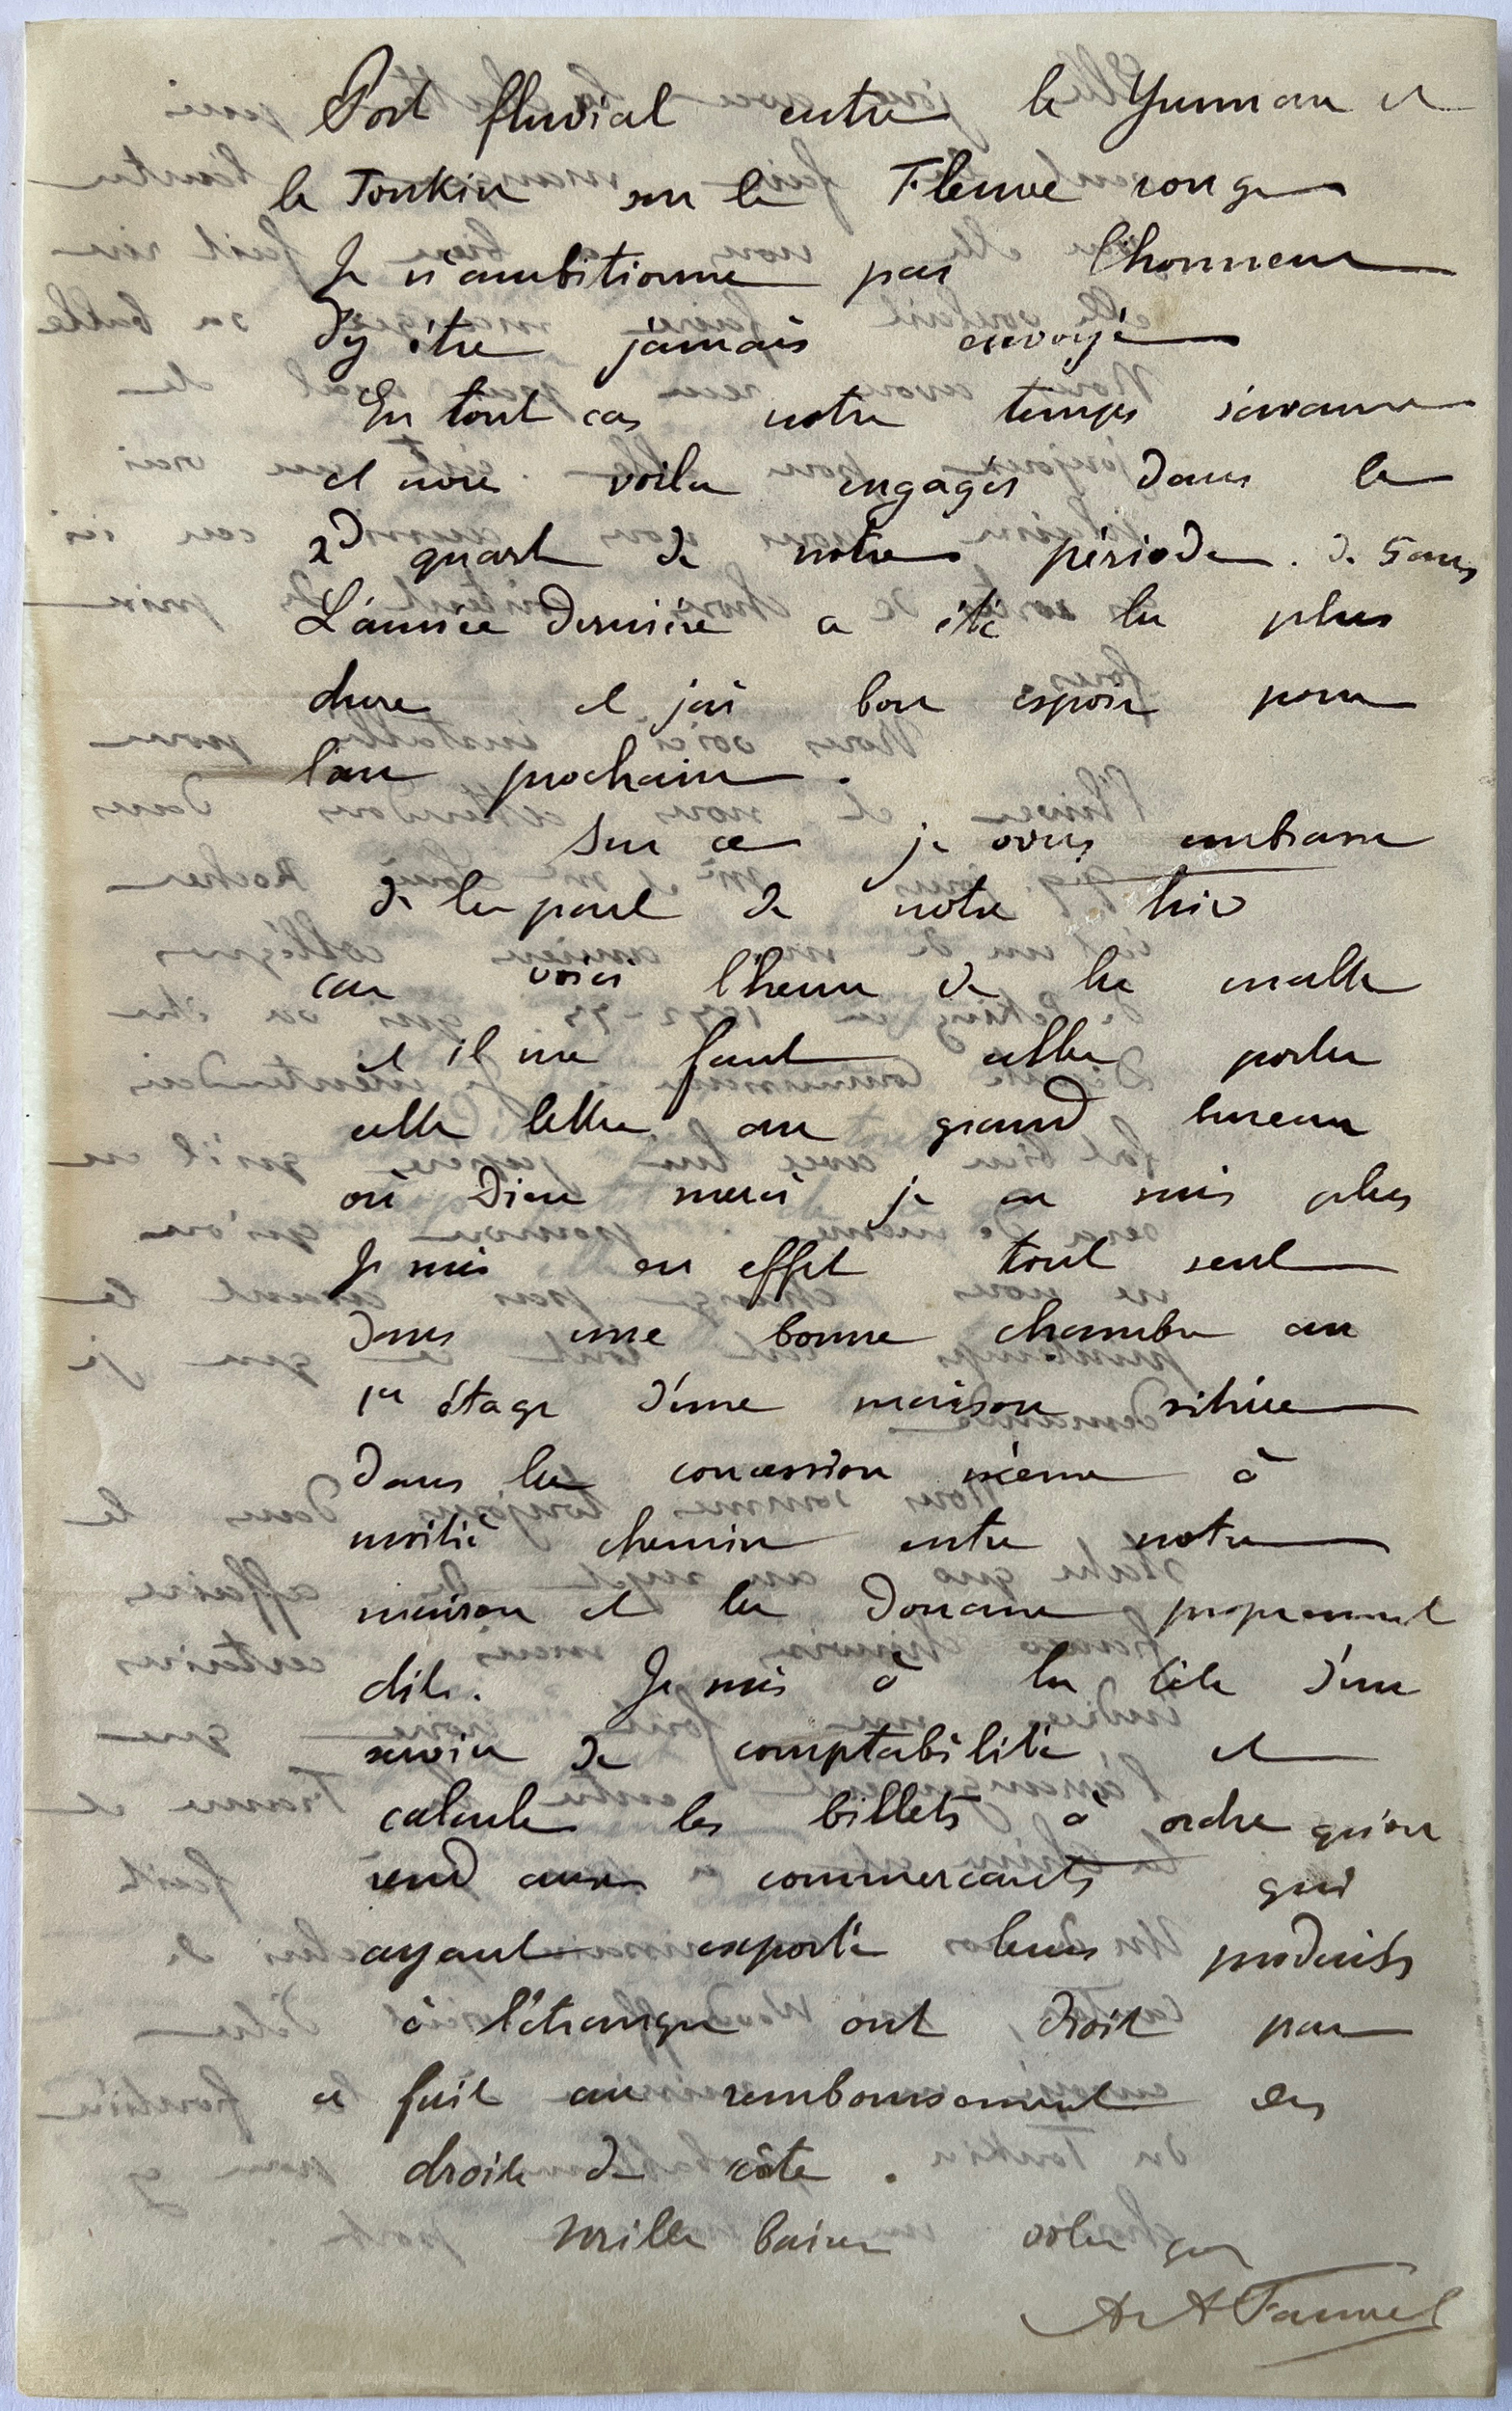 Port fluvial entre le Yunnan et
le Tonkin sur le Fleuve rouge
Je n'ambitionne pas l'honneur
d'y être jamais envoyé
En tout cas notre temps s'avance
et nous voila engagés dans le
2d quart de notre période. de 5 ans
L'année dernière a été la plus
dure et j'ai bon espoir pour
l'an prochain.
Sur ce je vous embrasse
de la part de notre trio
car voici l'heure de la malle
et il me faut aller porter
cette lettre au grand bureau
où Dieu merci je ne suis plus
Je suis en effet tout seul
dans une bonne chambre au
1er étage d'une maison située
dans la concession même à
moitié chemin entre notre
maison et la Douane proprement
dite. Je suis à la tête d'un
service de comptabilité et
calcule les billets à ordre qu'on
rend aux commercants qui
ayant exporté leurs produits
à l'étranger ont droit par
ce fait au remboursement des
droits de côte.
Mille baisers votre